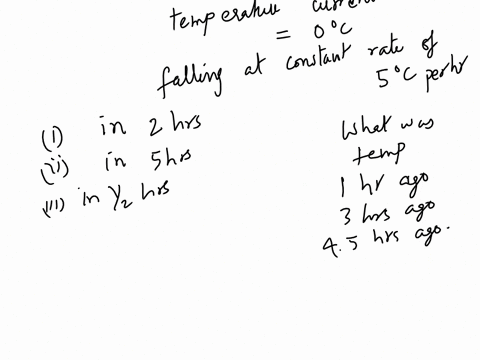 temperature
= 0°C
falling at constant rate of
5°C per hr
(i) in 2 hrs
(ii) in 5hrs
(iii) in 1/2 hrs
What was
temp
1 hr ago
3 hrs ago
4.5 hrs ago.